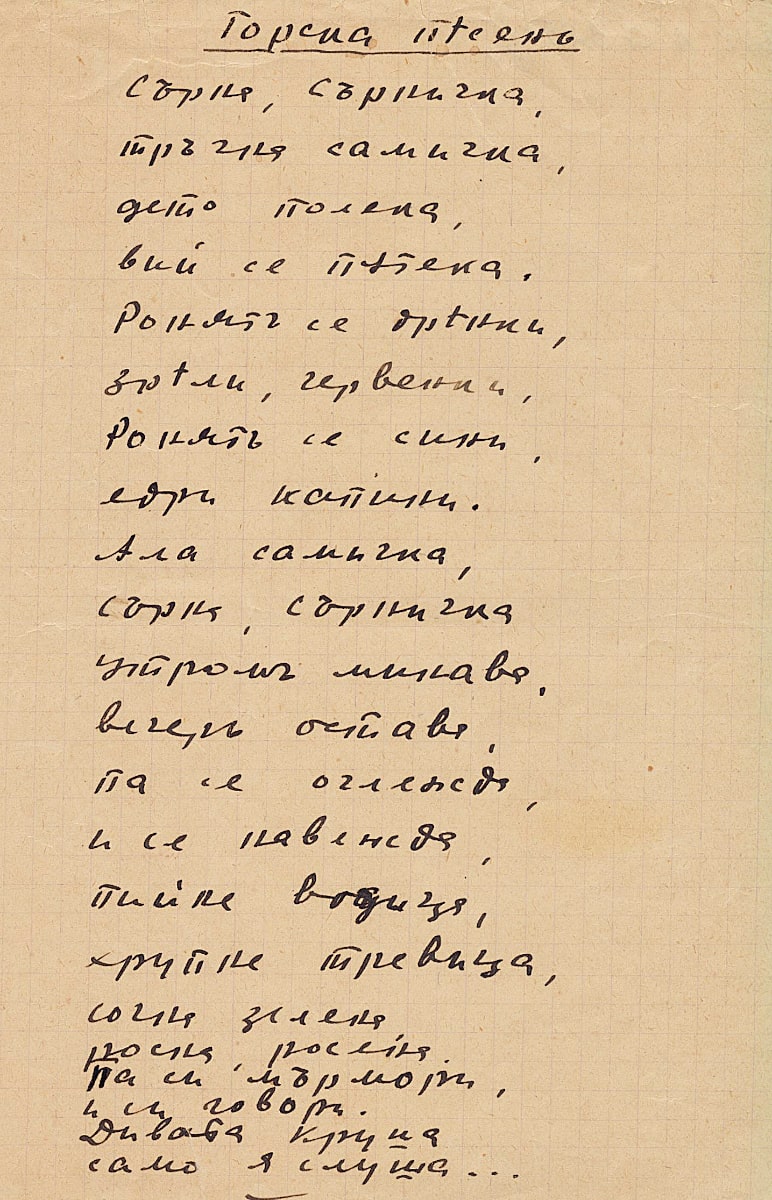 Горска пѣсень
Сърна, сърничка,
тръгна самичка,
дето полека,
вий се пѫтека.
Ронятъ се дрѣнки,
зрѣли, червенки,
Ронятъ се сини,
едри капини.
Ала самичка,
сърна, сърничка
утромъ минава,
вечерь остава,
па се оглежда,
и се навежда,
пийне водица,
хрупне тревица,
сочна зелена,
росна, росена.
Па си мърмори,
и си говори.
Дивата круша
само я слуша...